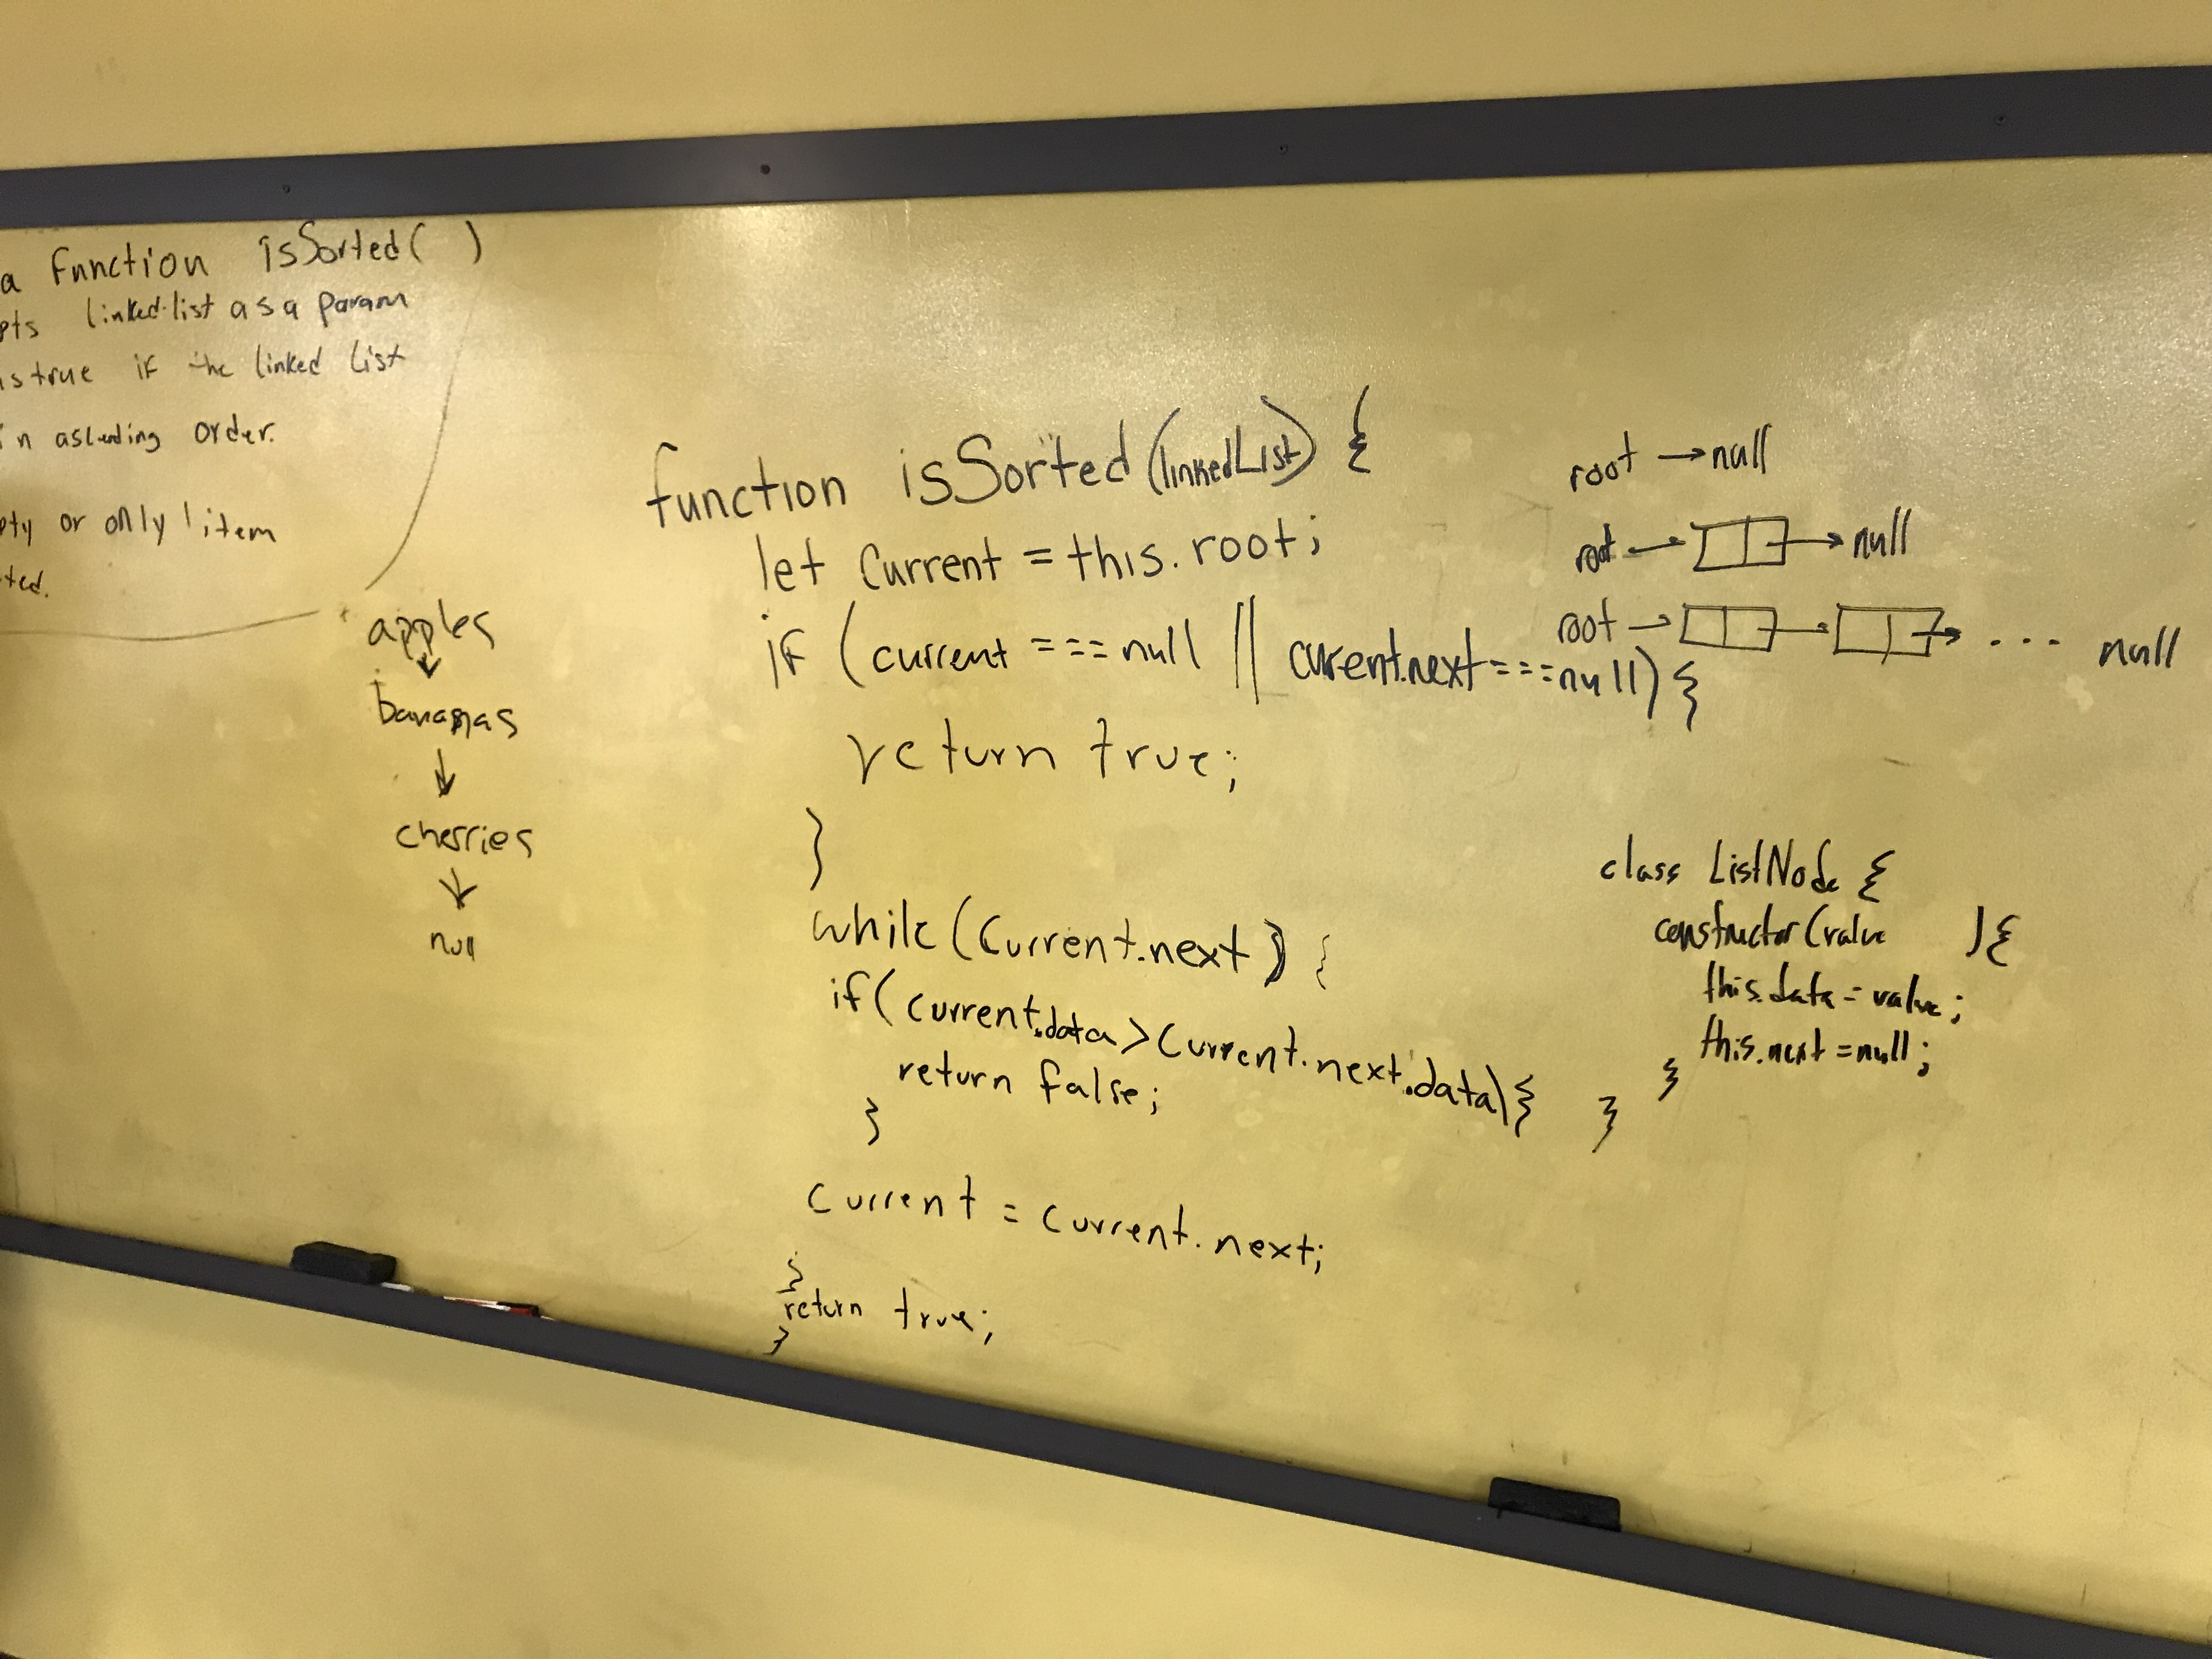 a function isSorted( )
linked-list as a param
true if the linked list
in ascending order.
or only 1 item
apples
bananas
cherries
null
function isSorted(linkedList) {
let current = this.root;
if (current === null || current.next === null) {
return true;
}
while (current.next) {
if (current.data > current.next.data) {
return false;
}
current = current.next;
}
return true;
}
root → null
root → null
root → ... null
class ListNode {
constructor(value ) {
this.data = value;
this.next = null;
}
}